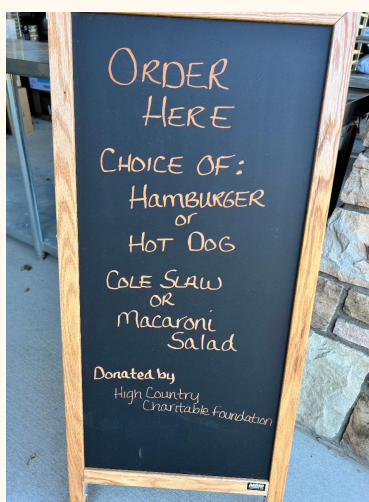 ORDER
HERE
CHOICE OF:
HamBURGER
or
HOT DOG
COLE SLAW
OR
Macaroni
Salad
Donated by
High Country
Charitable Foundation